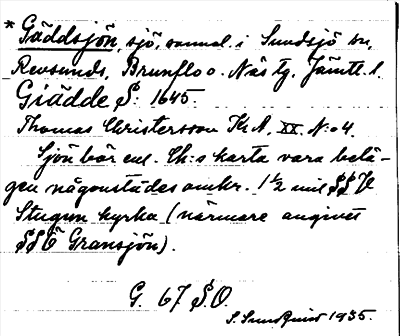 * Gäddsjön, sjö, vannel. i Sundsjö sn,
Revsunds, Brunflo o. Näs tg. Jämtl. l.
Giädde S: 1645.
Thomas Christersson K.A. XX. N:o 4.
Sjön bör enl. Ch:s karta vara belä-
gen någonstädes omkr. 1 1/2 mil SSV
Stuguns kyrka (närmare angivet
SSÖ Gransjön).
G. 67 S.O.
S. Sundquist 1935.